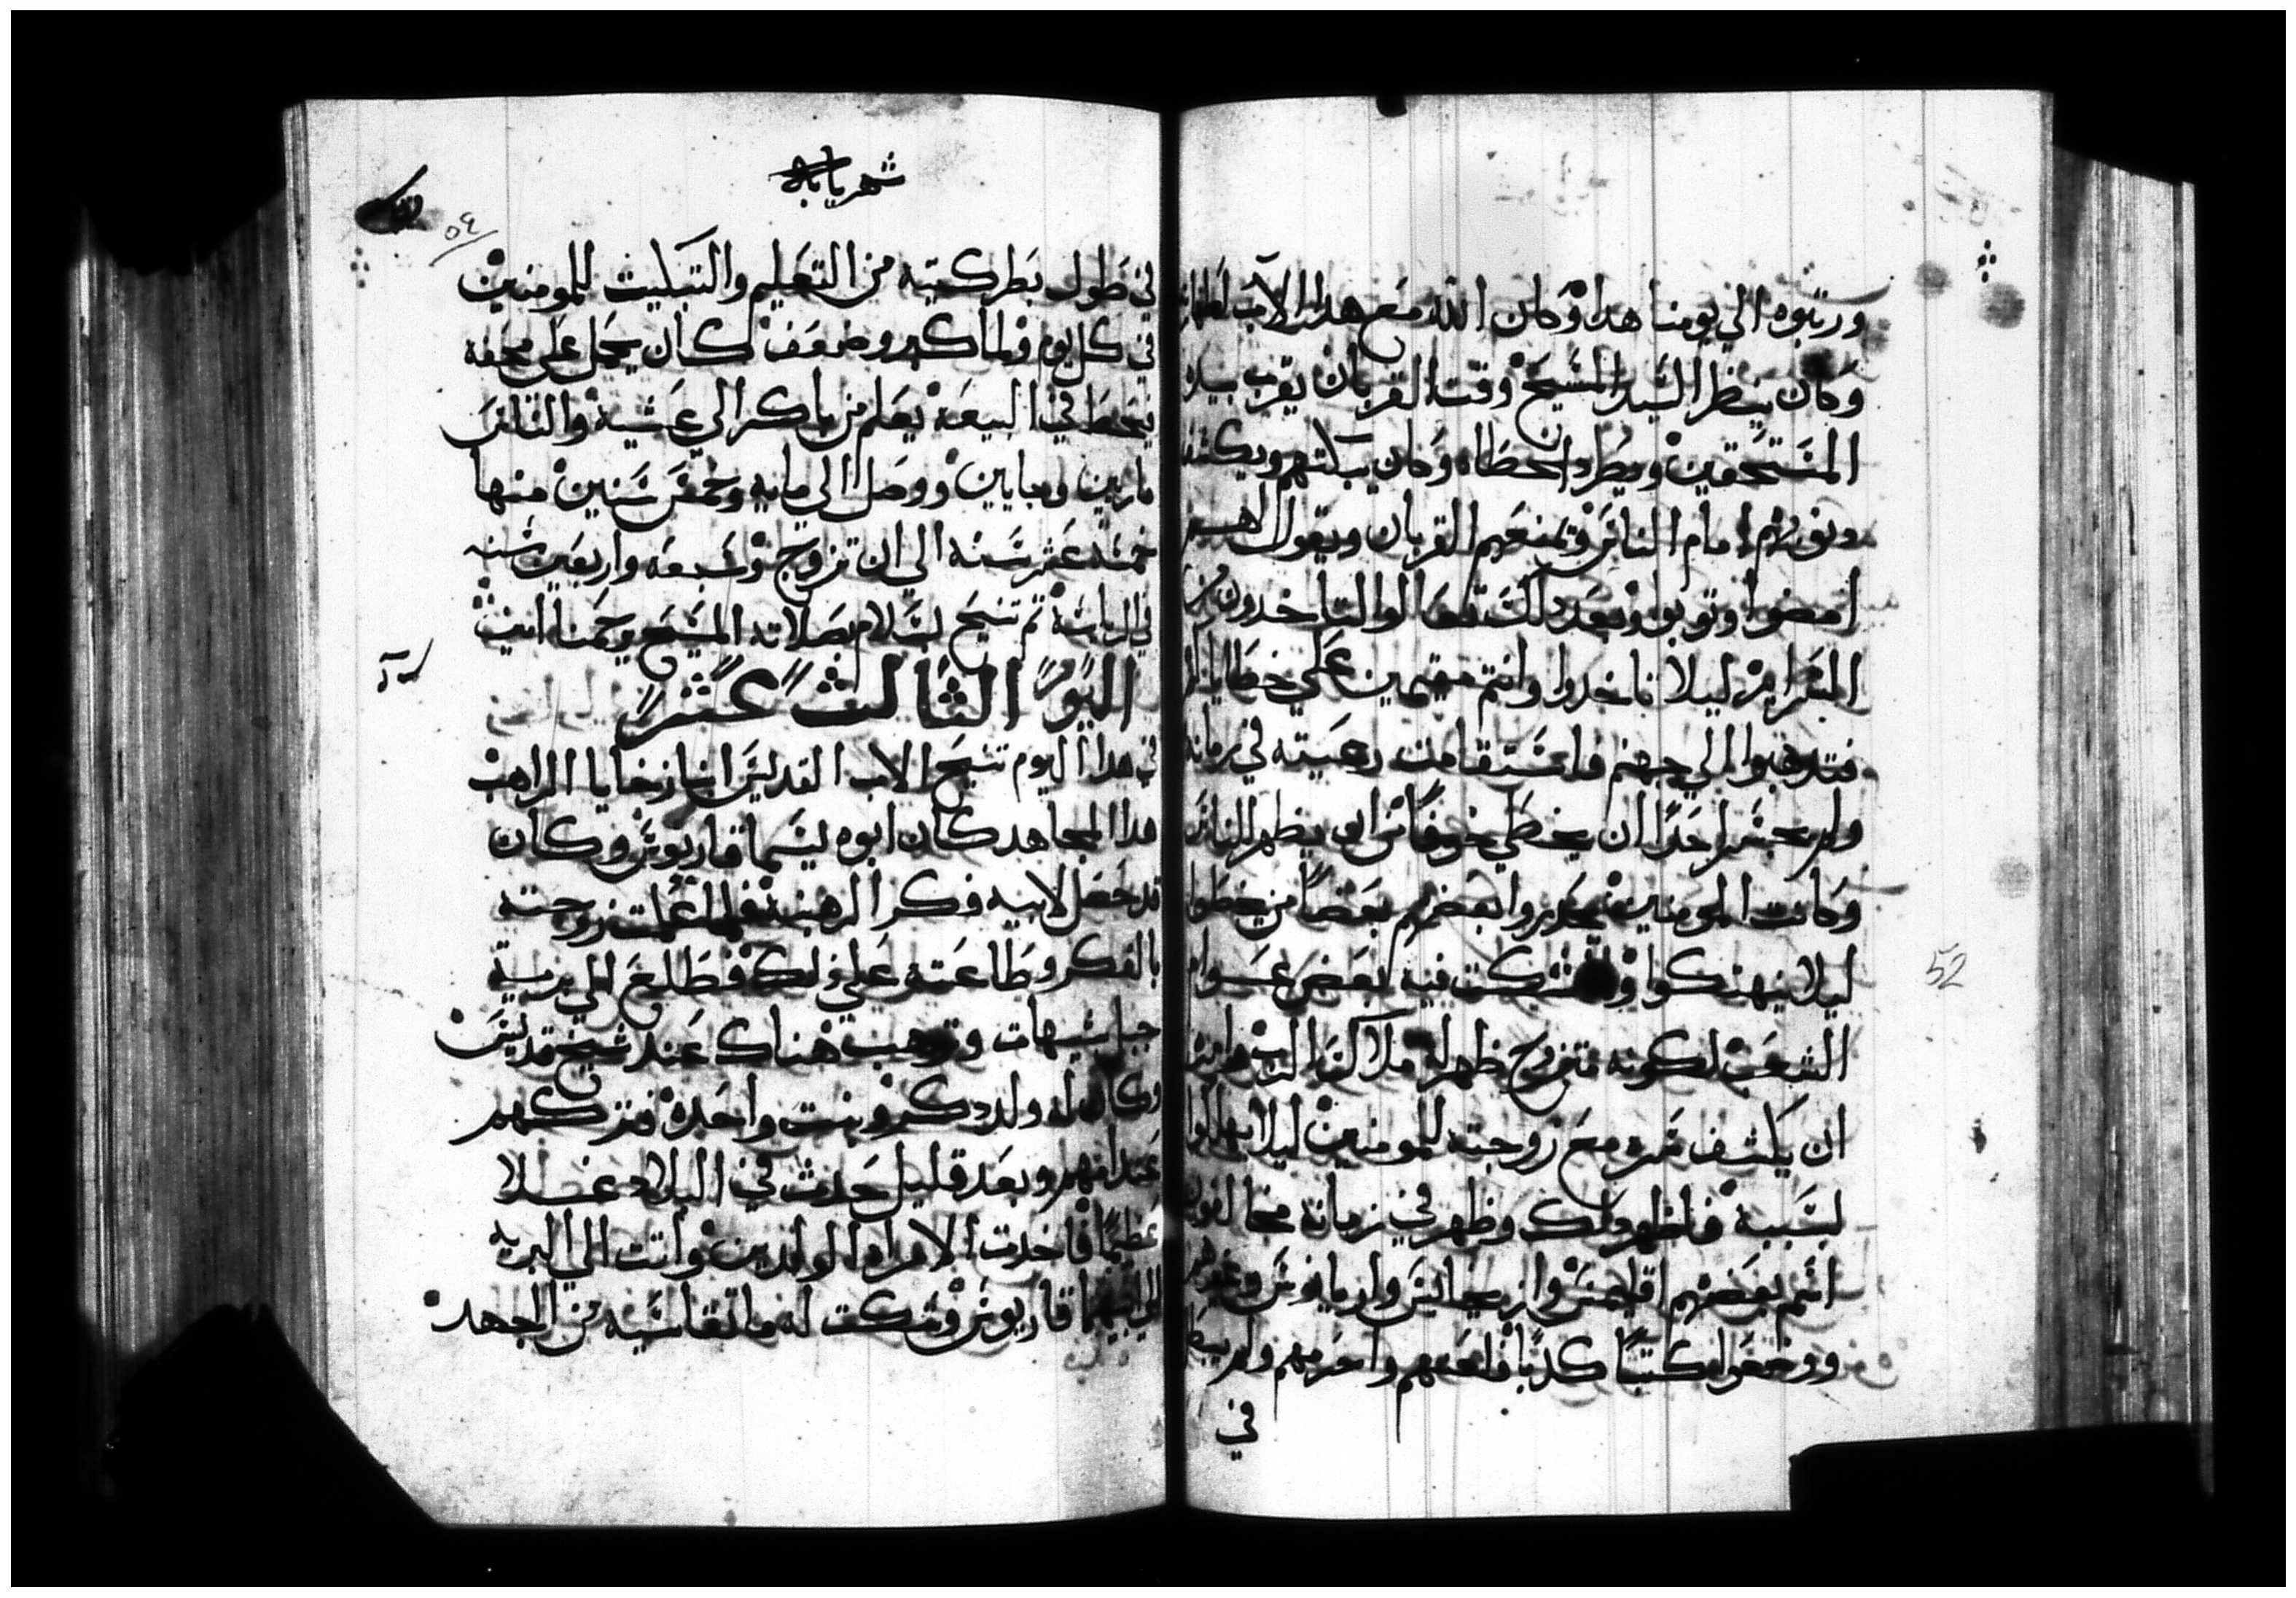 ورتبوه الي يومنا هدا وكان الله مع هدا الاب
وكان ينظر السيد المسيح وقت القربان يقرب بيده
المستحقين ويطرد الخطاه وكان يبكتهم ويكشف
امام الناس ويمنعهم القربان ويقول لهم
امضوا وتوبوا وبعد دلك تعالوا لتاخدون من
السراير ليلا تاخدوا وانتم مقيمين علي خطاياكم
فتدهبوا الي جهنم فاستقامت رعيته في زمانه
ولم يجسر احدًا ان يخطي خوفًا من ان يظهر للناس
وكانت المومنين يحدروا بعضهم بعضًا من الخطا
ليلا ينهتكوا ولما شكت فيه بعض عوام
الشعب لكونه متزوج ظهر له ملاك الرب وامره
ان يكشف سره مع زوجته للمومنين ليلا يهلكوا
بسببه فاظهر دلك وظهر في زمانه مخالفون
اسم بعضهم اقليمس وارسجانيس واريانوس وغيرهم
ووضعوا كتبًا كدبًا فلعنهم واحرمهم ولم يبطل
في
52
شهر بابه
٥٤
في طول بطركتيه من التعليم والتبكيت للمومنين
في كل يوم ولما كبر وضعف كان يحمل علي محفه
فيحط في البيعه يعلم من باكر الي عشيه والناس
مارين وجايين ووصل الي مايه وخمس سنين منها
خمسه عشر سنه الي ان تزوج وسبعه واربعين سنه
في الرياسه تم تنيح بسلام بصلاته المسيح يرحمنا امين
اليوم الثالث عشر
في هدا اليوم تنيح الاب القديس انبا زخاريا الراهب
هدا المجاهد كان ابوه يسما قاريوس وكان
قد حصل لابيه فكر الرهبنه فلما علمت زوجته
بالفكر وطاعته علي دلك فطلع الي برية
جبل شيهات وترهب هناك عند شيخ قديس
وكان له ولد دكر وبنت واحده فتركهم
عند امهم وبعد قليل حدث في البلاد غلا
عظيمًا فاخدت الامراه الولدين واتت الي البريه
الي ابيهما قاريوس وشكت له ما تقاسيه من الجهد